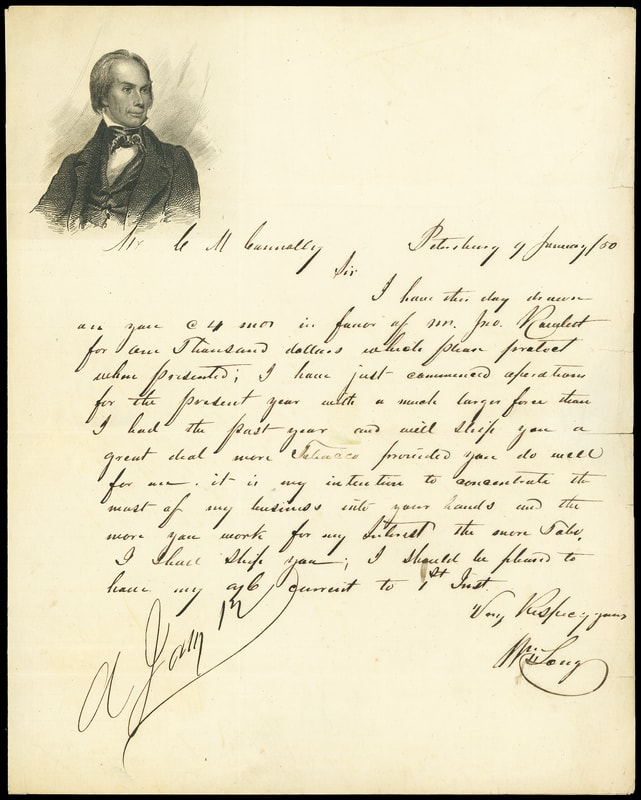 Mr C M Connolly Petersburg 9 January /50
Sir
I have this day drawn
on you @ 4 mos in favor of Mr. Jno.
for One Thousand dollars which please protect
when presented; I have just commenced operations
for the present year with a much larger force than
I had the past year and will ship you a
great deal more Tobacco provided you do well
for me. it is my intention to concentrate the
most of my business into your hands and the
more you work for my Interest the more Tobo.
I shall ship you; I should be pleased to
have my a/c current to 1st Inst.
Very Respecy yours
Wm Long
A Jany 12